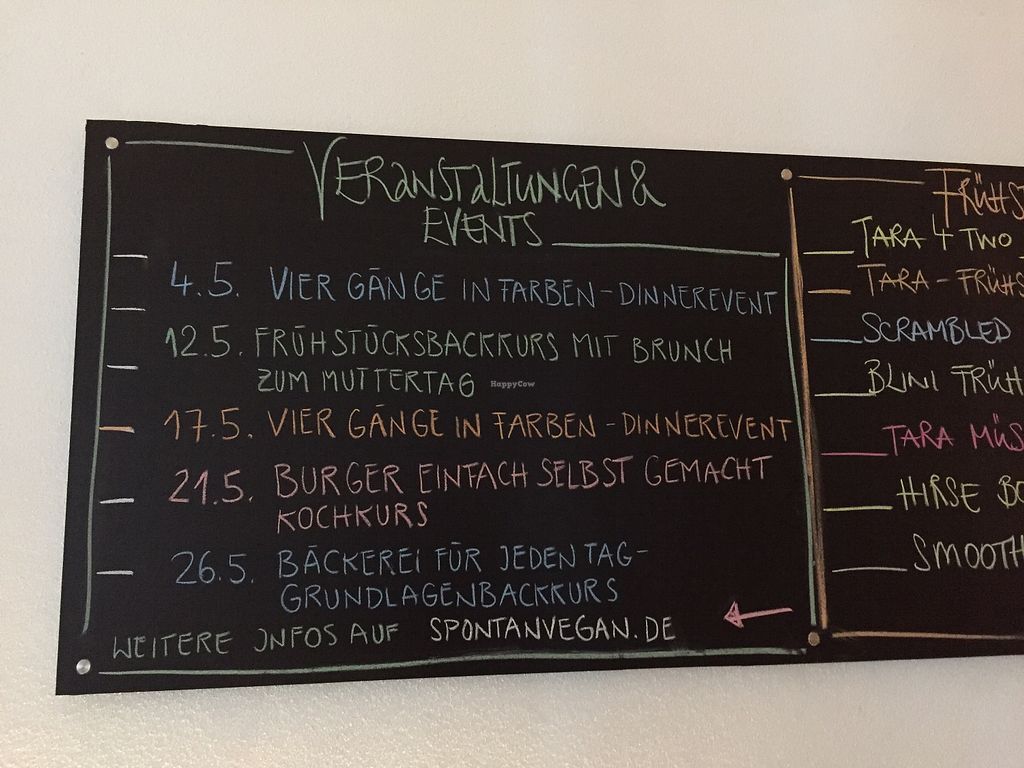 VERANSTALTUNGEN &
EVENTS
4.5. VIER GÄNGE IN FARBEN - DINNEREVENT
12.5. FRÜHSTÜCKSBACKKURS MIT BRUNCH
ZUM MUTTERTAG
HappyCow
17.5. VIER GÄNGE IN FARBEN - DINNEREVENT
21.5. BURGER EINFACH SELBST GEMACHT
KOCHKURS
26.5. BÄCKEREI FÜR JEDEN TAG-
GRUNDLAGENBACKKURS
WEITERE INFOS AUF SPONTANVEGAN.DE
FRÜHST
TARA 4 TWO
TARA - FRÜHS
SCRAMBLED
BLINI FRÜH
TARA MÜS
HIRSE BO
SMOOTH